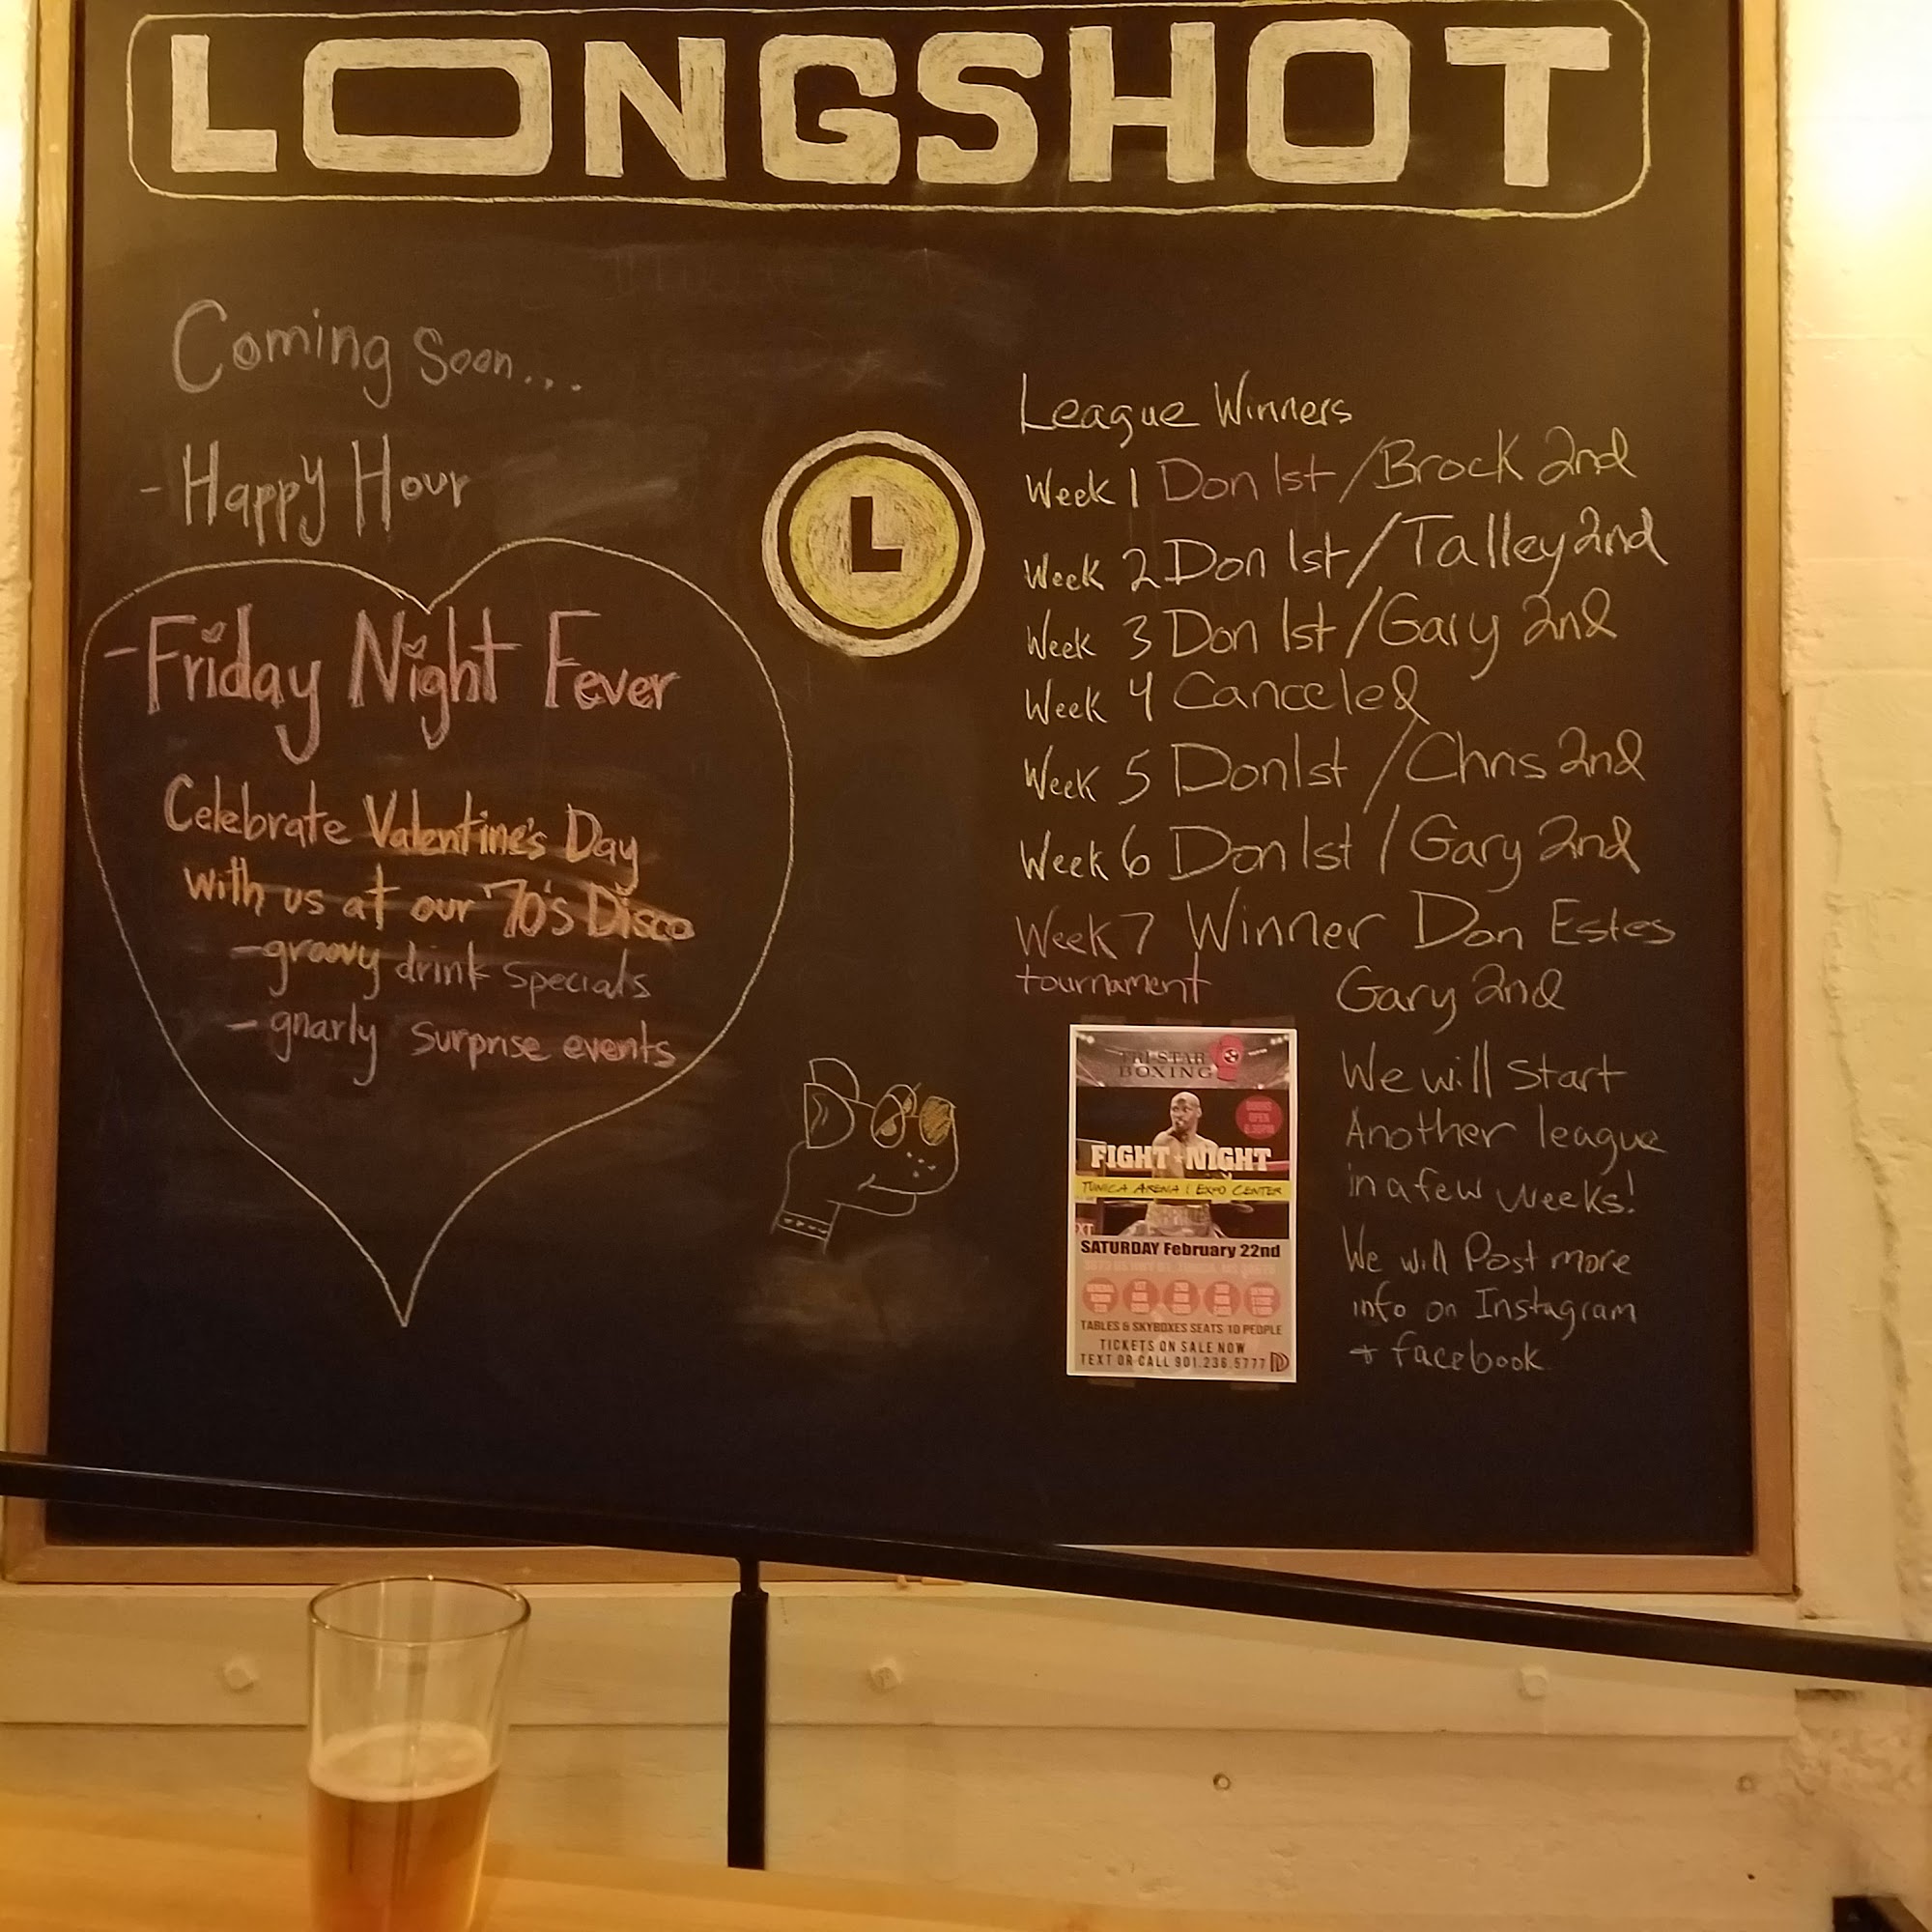 LONGSHOT
Coming Soon...
- Happy Hour
- Friday Night Fever
Celebrate Valentine's Day
with us at our '70's Disco
- groovy drink specials
- gnarly surprise events
L
League Winners
Week 1 Don 1st / Brock 2nd
Week 2 Don 1st / Talley 2nd
Week 3 Don 1st / Gary 2nd
Week 4 Canceled
Week 5 Don 1st / Chris 2nd
Week 6 Don 1st / Gary 2nd
Week 7 Winner Don Estes
tournament Gary 2nd
We will Start
Another league
in a few weeks!
We will Post more
info on Instagram
+ facebook.
TRI-STAR
BOXING
DOORS
OPEN
FIGHT NIGHT
TUNICA ARENA | EXPO CENTER
SATURDAY February 22nd
TABLES & SKYBOXES SEATS 10 PEOPLE
TICKETS ON SALE NOW
TEXT OR CALL 901.236.5777